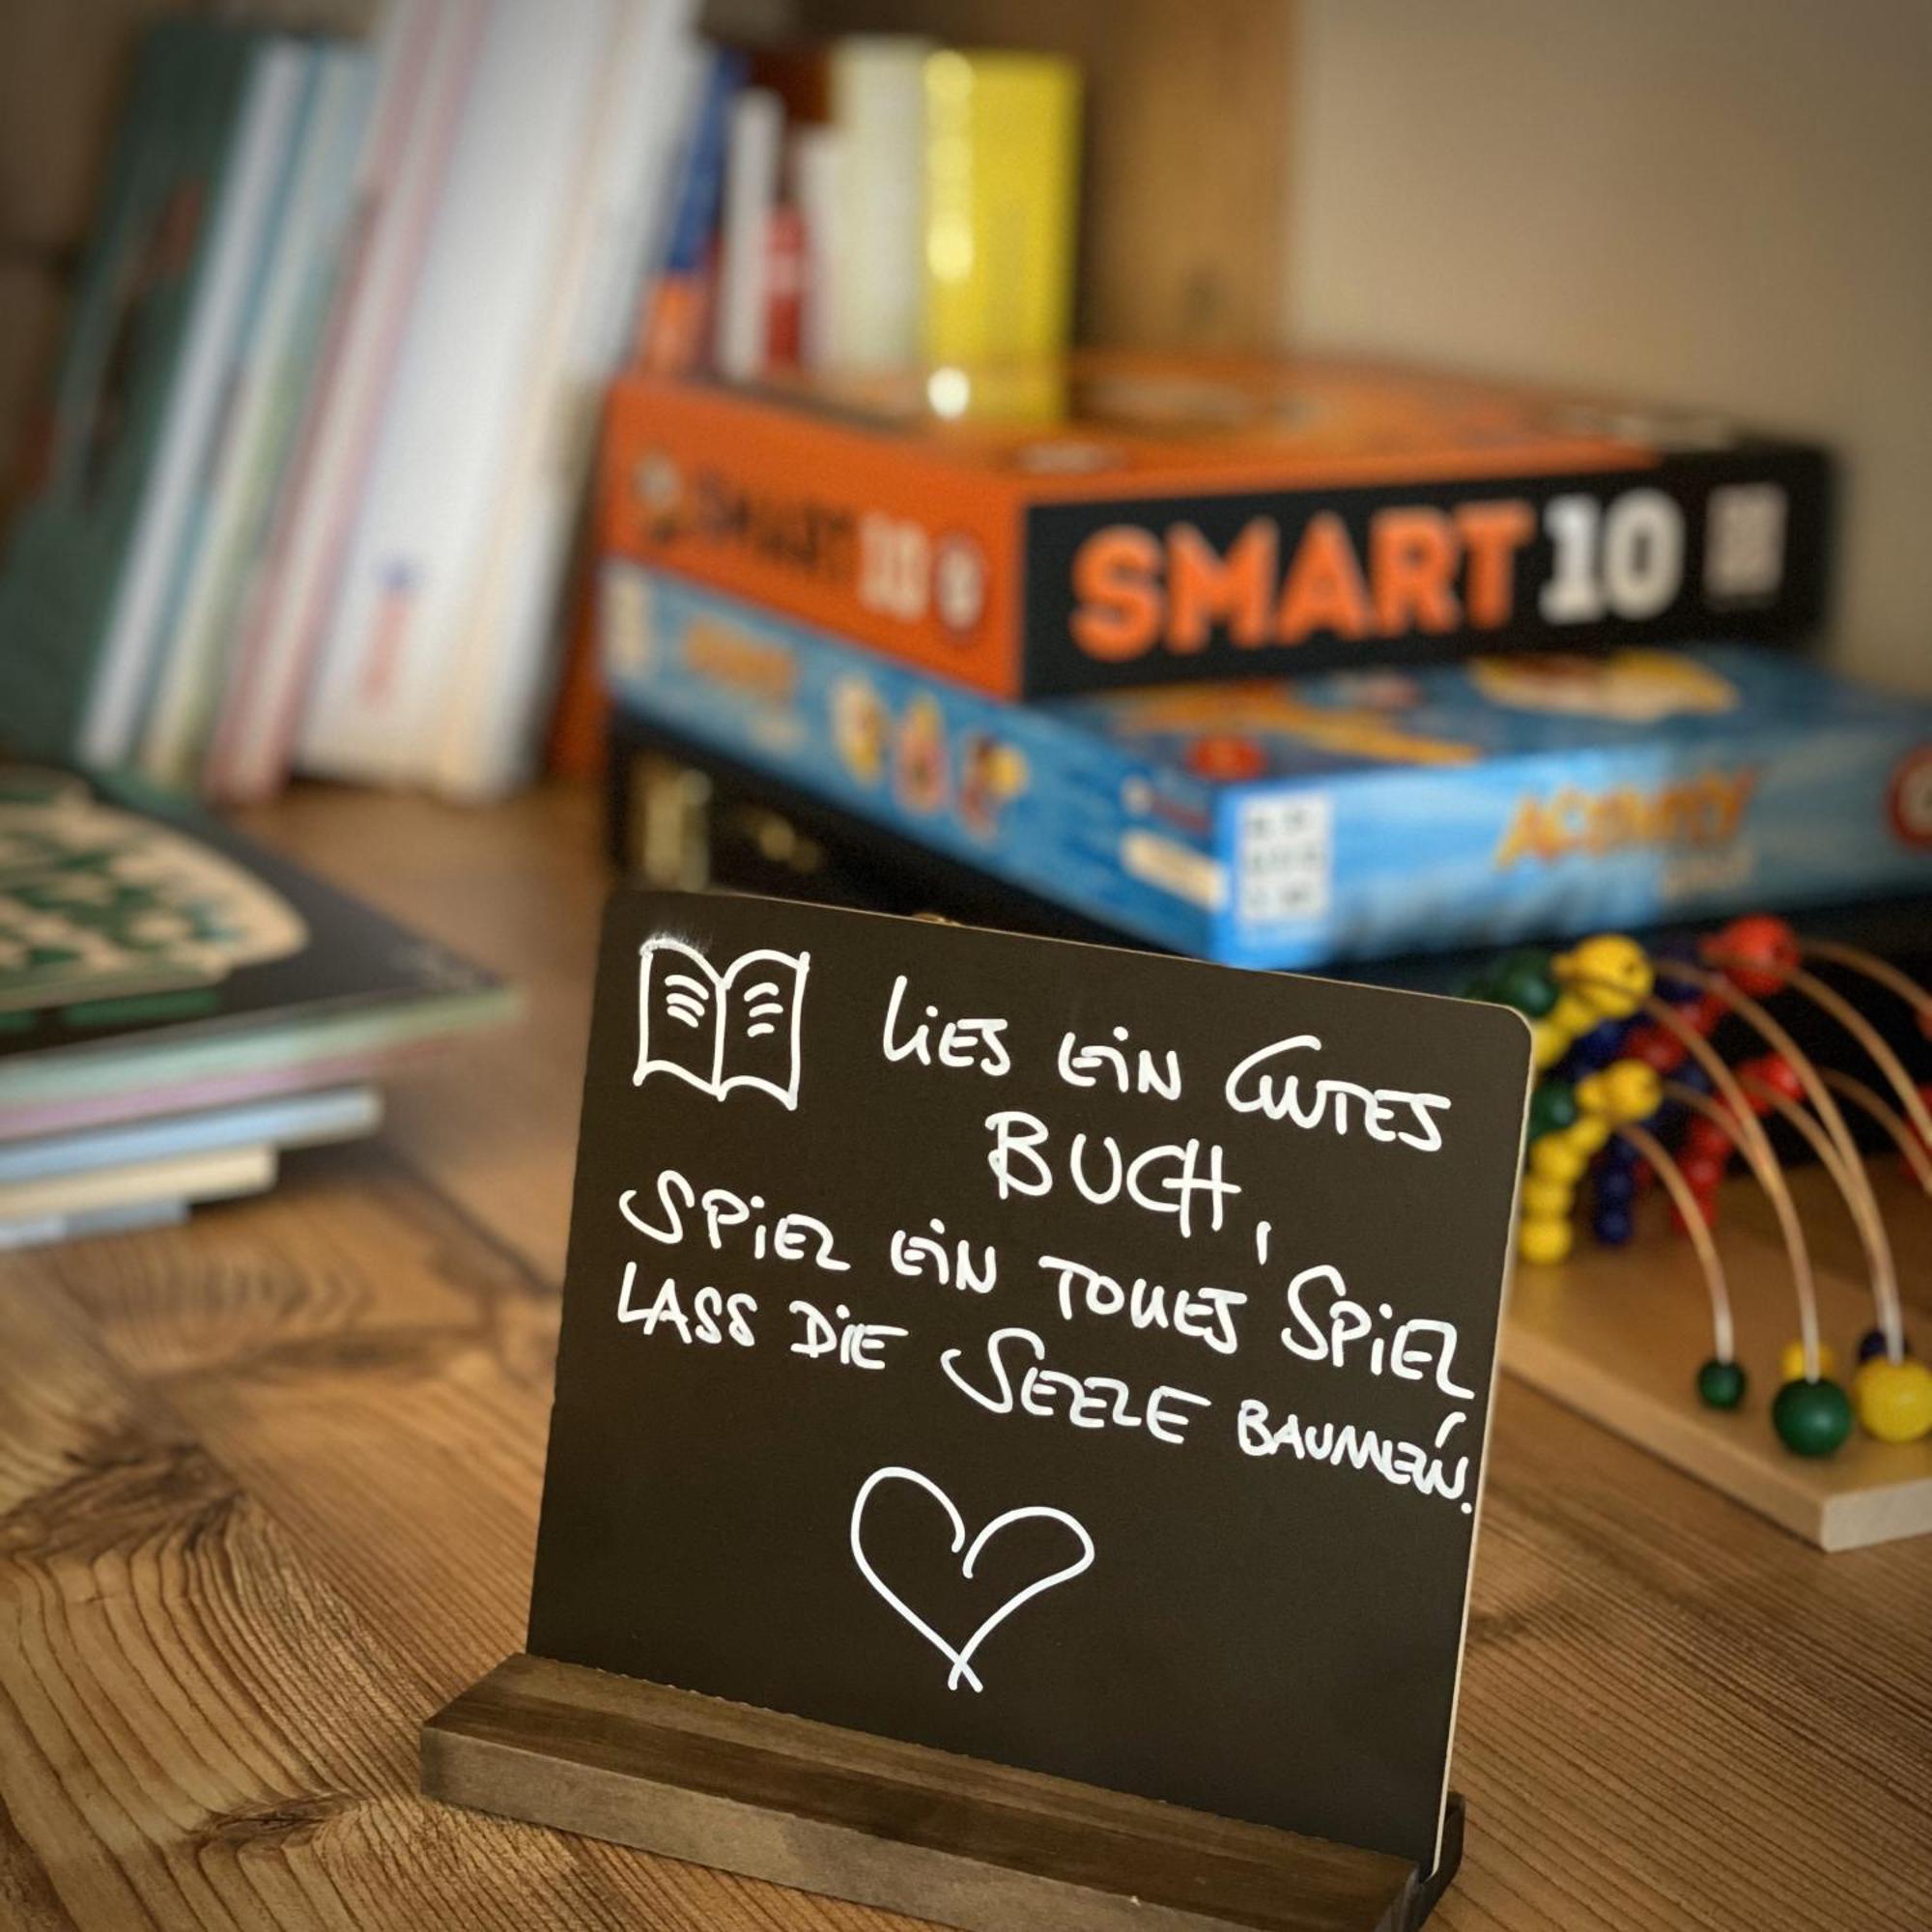 SMART 10
SMART 10
ACTIVITY
Lies ein Gutes
Buch,
Spiel ein tolles Spiel
Lass die Seele baumeln.